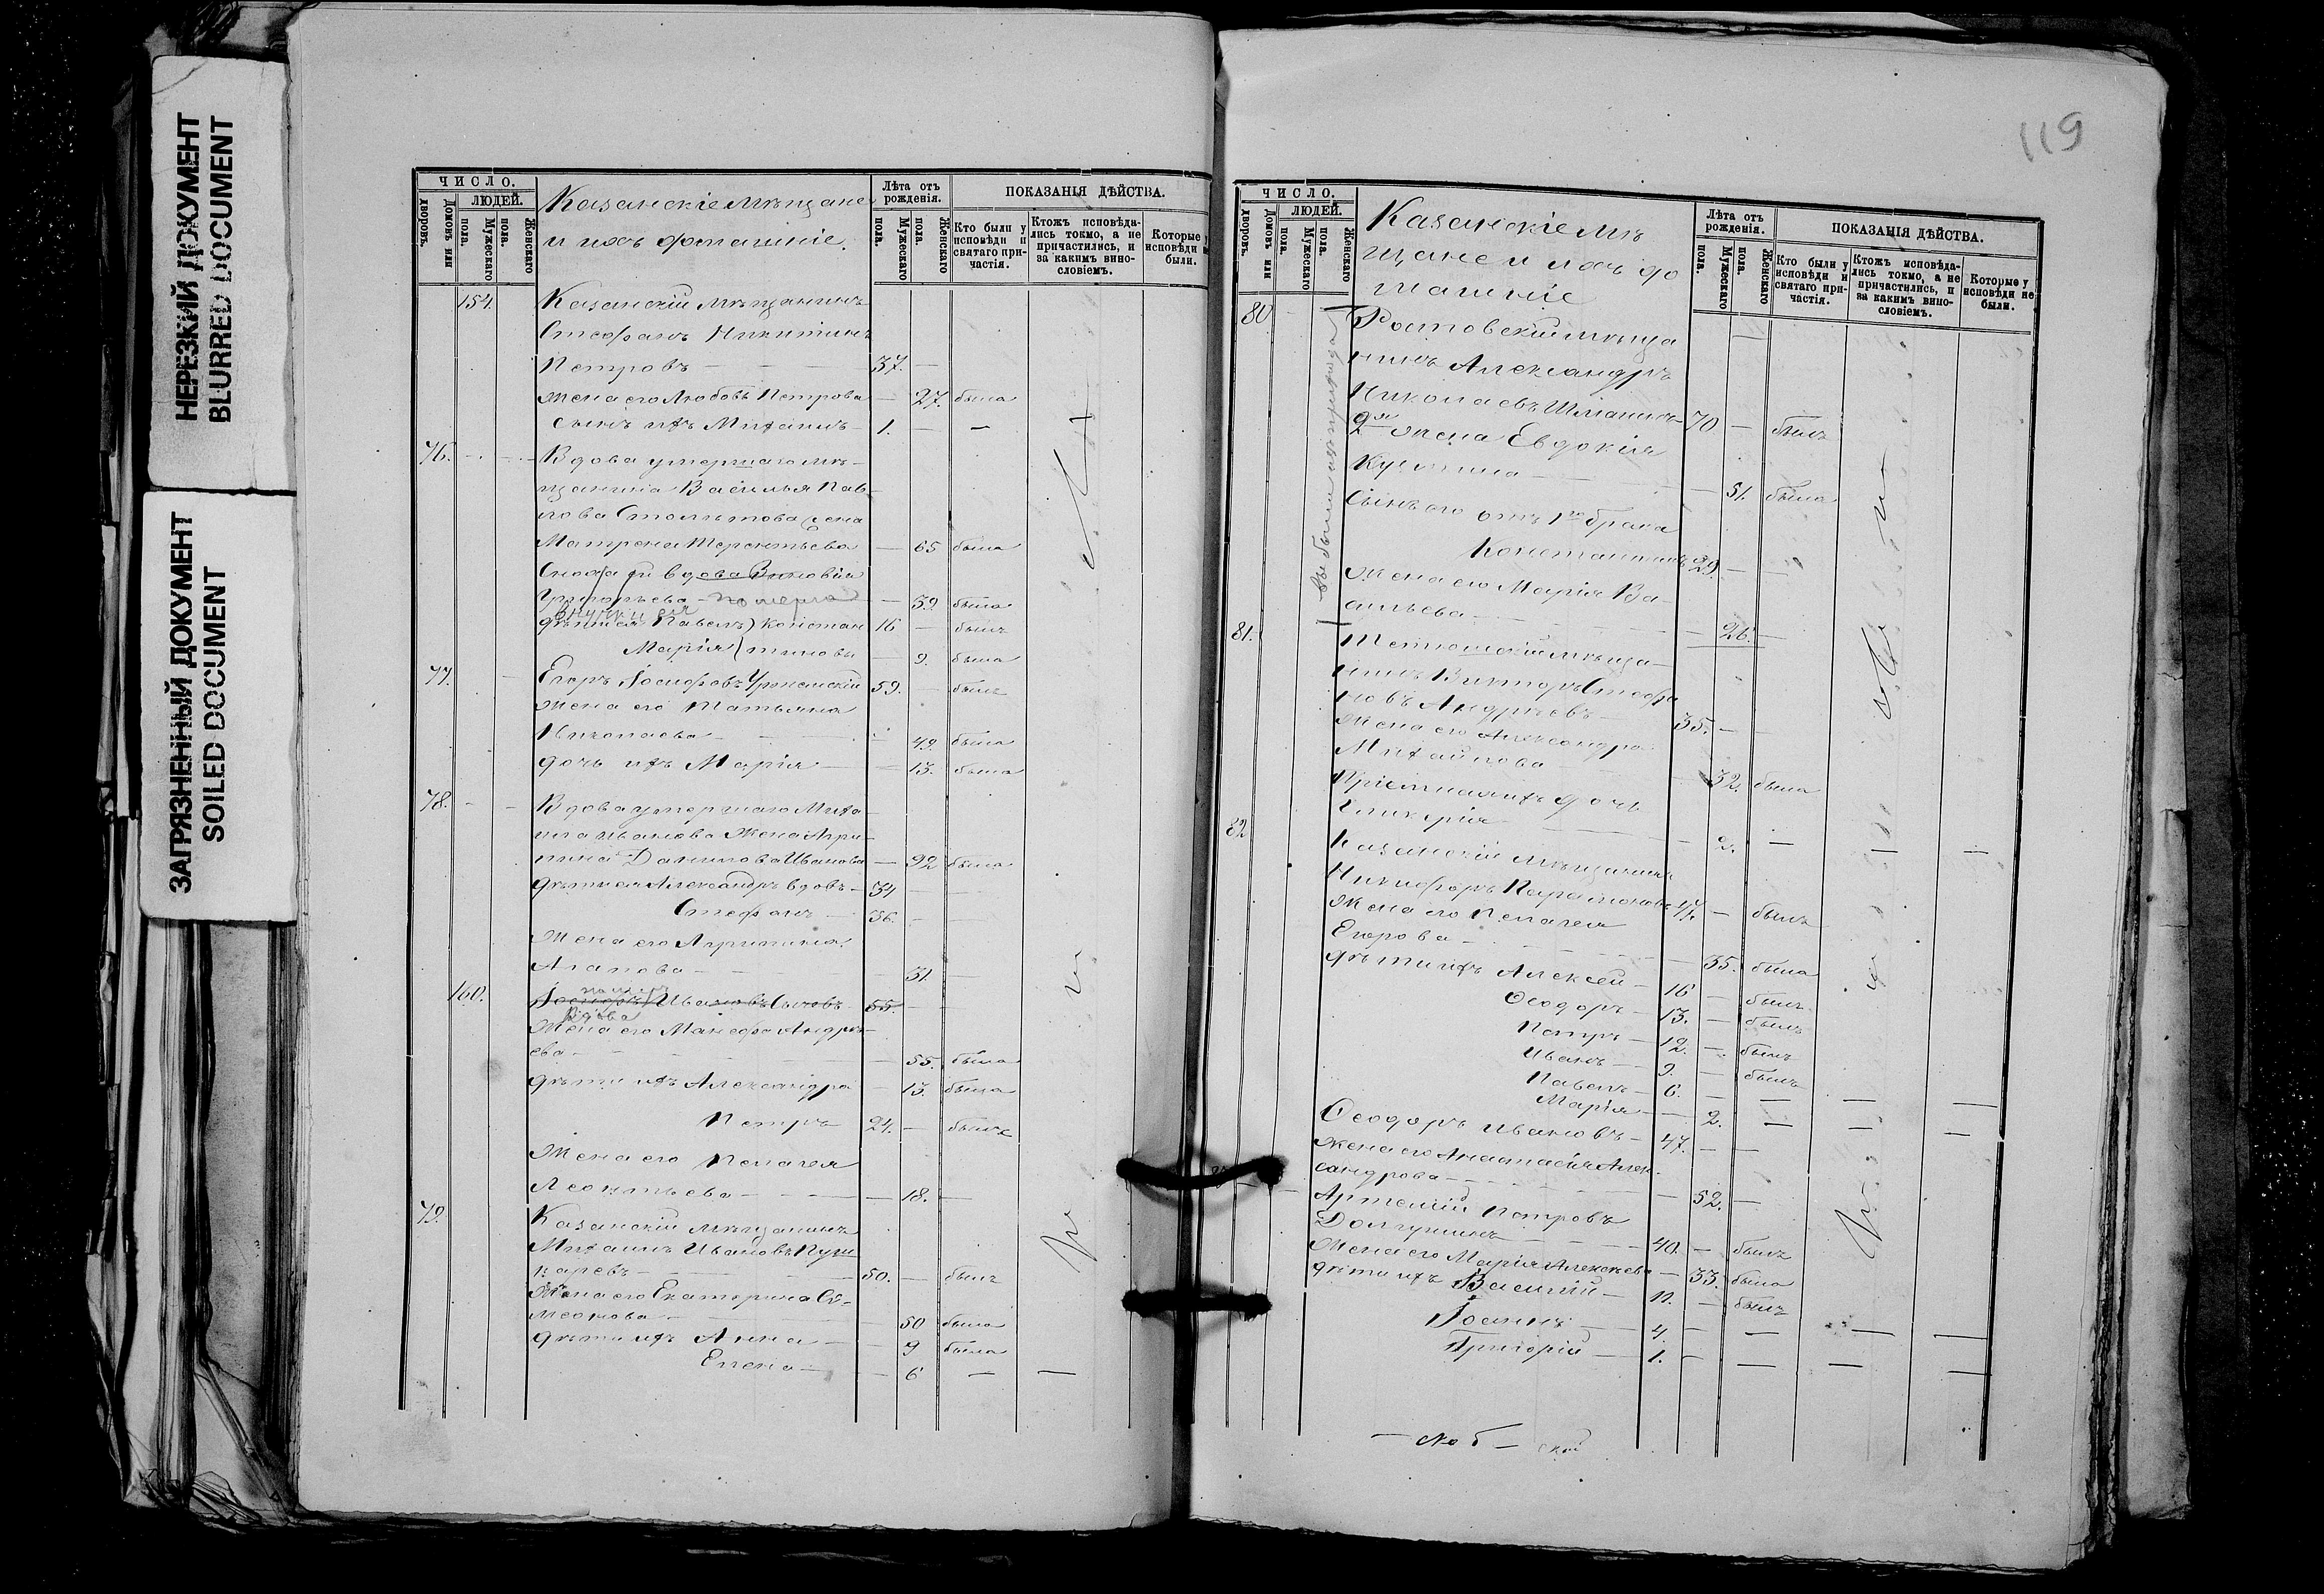 НЕРЕЗКИЙ ДОКУМЕНТ
BLURRED DOCUMENT
ЗАГРЯЗНЕННЫЙ ДОКУМЕНТ
SOILED DOCUMENT
ЧИСЛО.
ЛЮДЕЙ.
Домовъ или дворовъ.
Мужескаго пола.
Женскаго пола.
Казанскіе мѣщане
и ихъ домашніе.
Лѣта отъ рожденія.
Мужескаго пола.
Женскаго пола.
ПОКАЗАНІЯ ДѢЙСТВА.
Кто были у исповѣди и святаго при-частія.
Ктожъ исповѣда-лись токмо, а не причастились, и за какимъ вино-словіемъ.
Которые исповѣди были.
154. Казанскій мѣщанинъ
Стефанъ Никитинъ
Петровъ — 37. —
жена его Любовь Петрова — 27. была
сынъ ихъ Михаилъ — 1. — —
76. Вдова умершаго мѣ-
щанина Василья Пав-
лова Столѣтова жена
Матрена Терентьева — 65 была
Сноха ея вдова
Григорьева — померла — 39 была
Внучки ея
дѣти ея Павелъ) Констан 16 — былъ
Марія) тиновы — 9. была
77. Егоръ Іосифовъ Уржемскій 59. — былъ
Жена его Татьяна
Николаева — 49. была
дочь ихъ Марія — 13. была
78. Вдова умершаго Миха-
ила Иванова жена Агри-
пина Данилова Иванова — 92 была
дѣти ея Александръ вдовъ — 54 —
Стефанъ — 36. —
Жена его Агрипина
Агапова — 31. —
160. померъ
Іосифъ Ивановъ Сычовъ 55. —
вдова
Жена его Манефа Андрѣ-
ева — 55. была
дѣти ихъ Александра — 13. была
Петръ 24. — былъ
Жена его Пелагея
Леонтьева — 18. —
79. Казанскій мѣщанинъ
Михаилъ Ивановъ Пуш
каревъ — 50. — былъ
Жена его Екатерина Си-
меонова — 50 была
дѣти ихъ Анна — 9 была
Елена — 6 — —
119
ЧИСЛО.
ЛЮДЕЙ.
Домовъ или дворовъ.
Мужескаго пола.
Женскаго пола.
Казанскіе мѣ
щане и ихъ до
машніе
Лѣта отъ рожденія.
Мужескаго пола.
Женскаго пола.
ПОКАЗАНІЯ ДѢЙСТВА.
Кто были у исповѣди и святаго при-частія.
Ктожъ исповѣда-лись токмо, а не причастились, и за какимъ вино-словіемъ.
Которые у исповѣди не были.
80 Ростовскій мѣща
нинъ Александръ
Николаевъ 70 — былъ
2я жена Евдокія
Кузмина — 51. была
Сынъ его отъ 1го брака
Константинъ 29. —
Жена его Марія Ва-
сильева — 26. —
81. Тетюшскій мѣща-
нинъ Викторъ Стефа
новъ Андреевъ — 35. —
Жена его Александра
Михайлова — 32. была
Пріемная ихъ дочь
Гликерія — 9. — — —
82 Казанскій мѣщанинъ
Никифоръ Парамоновъ 44. — былъ
Жена его Пелагея
Егорова — 35. была
дѣти ихъ Алексей — 16 — былъ
Ѳеодоръ — 13. — былъ
Петръ — 12. — былъ
Иванъ — 9. — былъ
Павелъ — 6. — — — —
Марія — 2. — — —
Ѳеодоръ Ивановъ — 47. —
жена его Анастасія Алек-
сандрова — 52. —
Артемій Петровъ
Долгушинъ — 40. — былъ
Жена его Марія Алексѣева — 33. была
дѣти ихъ Василій — 11. — былъ
Іоаннъ — 4. — — — —
Григорій — 1. — — — —